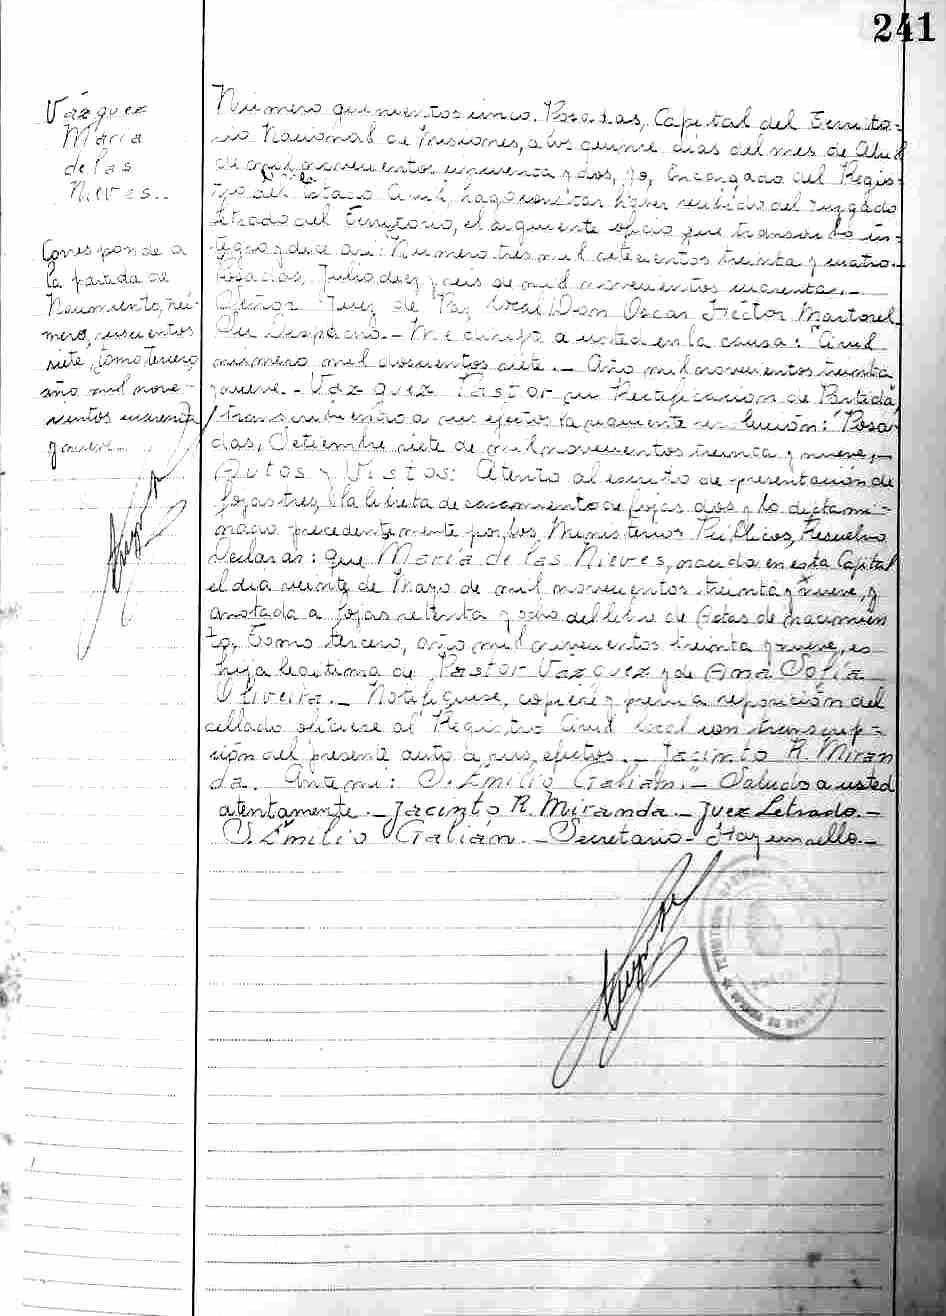 241
Vázquez
María
de las
Nieves..
Corresponde a
la partida de
Nacimiento, nú-
mero, 
siete, tomo tercero
año mil nove-
cientos cuarenta
y nueve..
Número quinientos cinco. Posadas, Capital del Territo-
rio Nacional de Misiones, a los quince días del mes de Abril
de mil novecientos cincuenta y dos, yo, Encargado del Regis-
tro del Estado Civil, hago constar haber recibido del Juzgado
Letrado del Territorio, el siguiente oficio que transcribo ín-
tegro y dice así: Número tres mil setecientos treinta y cuatro.-
Posadas, Julio diez y seis de mil novecientos cuarenta.-
Señor Juez de Paz local Don Oscar Héctor Martorel.
Su Despacho.- Me dirijo a usted en la causa: "Civil
número mil doscientos siete.- Año mil novecientos treinta
y nueve.- Vázquez Pastor su Rectificación de Partida"
transcribiendo a sus efectos la siguiente resolución: "Posa-
das, Setiembre siete de mil novecientos treinta y nueve,-
Autos y Vistos: Atento al escrito de presentación de
fojas tres, la libreta de casamiento de fojas dos y lo dictami-
nado precedentemente por los Ministerios Públicos, Resuelvo
Declarar: que María de las Nieves, nacida en esta Capital
el día veinte de Marzo de mil novecientos treinta y nueve, y
anotada a fojas setenta y ocho del libro de Actas de nacimien
to, Tomo tercero, año mil novecientos treinta y nueve, es
hija legítima de Pastor Vazquez y de Ana Sofía
Oliveira.- Notifíquese, cópiese y previa reposición del
sellado ofíciese al Registro Civil local con transcrip-
ción del presente auto a sus efectos.- Jacinto R. Miran
da. Ante mi: S. Emilio Galián".- Saludo a usted
atentamente.- Jacinto R. Miranda.- Juez Letrado.-
S. Emilio Galián.- Secretario.- Hay un sello.-